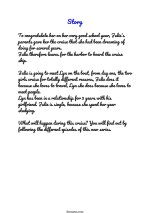 Story
To congratulate her on her very good school year, Julia's
parents gave her the cruise that she had been dreaming of
doing for several years.
Julia therefore leaves for the harbor to board the cruise
ship.
Julia is going to meet Lya on the boat, from day one, the two
girls cruise for totally different reasons, Julia does it
because she loves to travel, Lya she does because she loves to
meet people.
Lya has been in a relationship for 2 years with his
girlfriend. Julia is single, because she spent her year
studying.
What will happen during this cruise? You will find out by
following the different episodes of this new series.